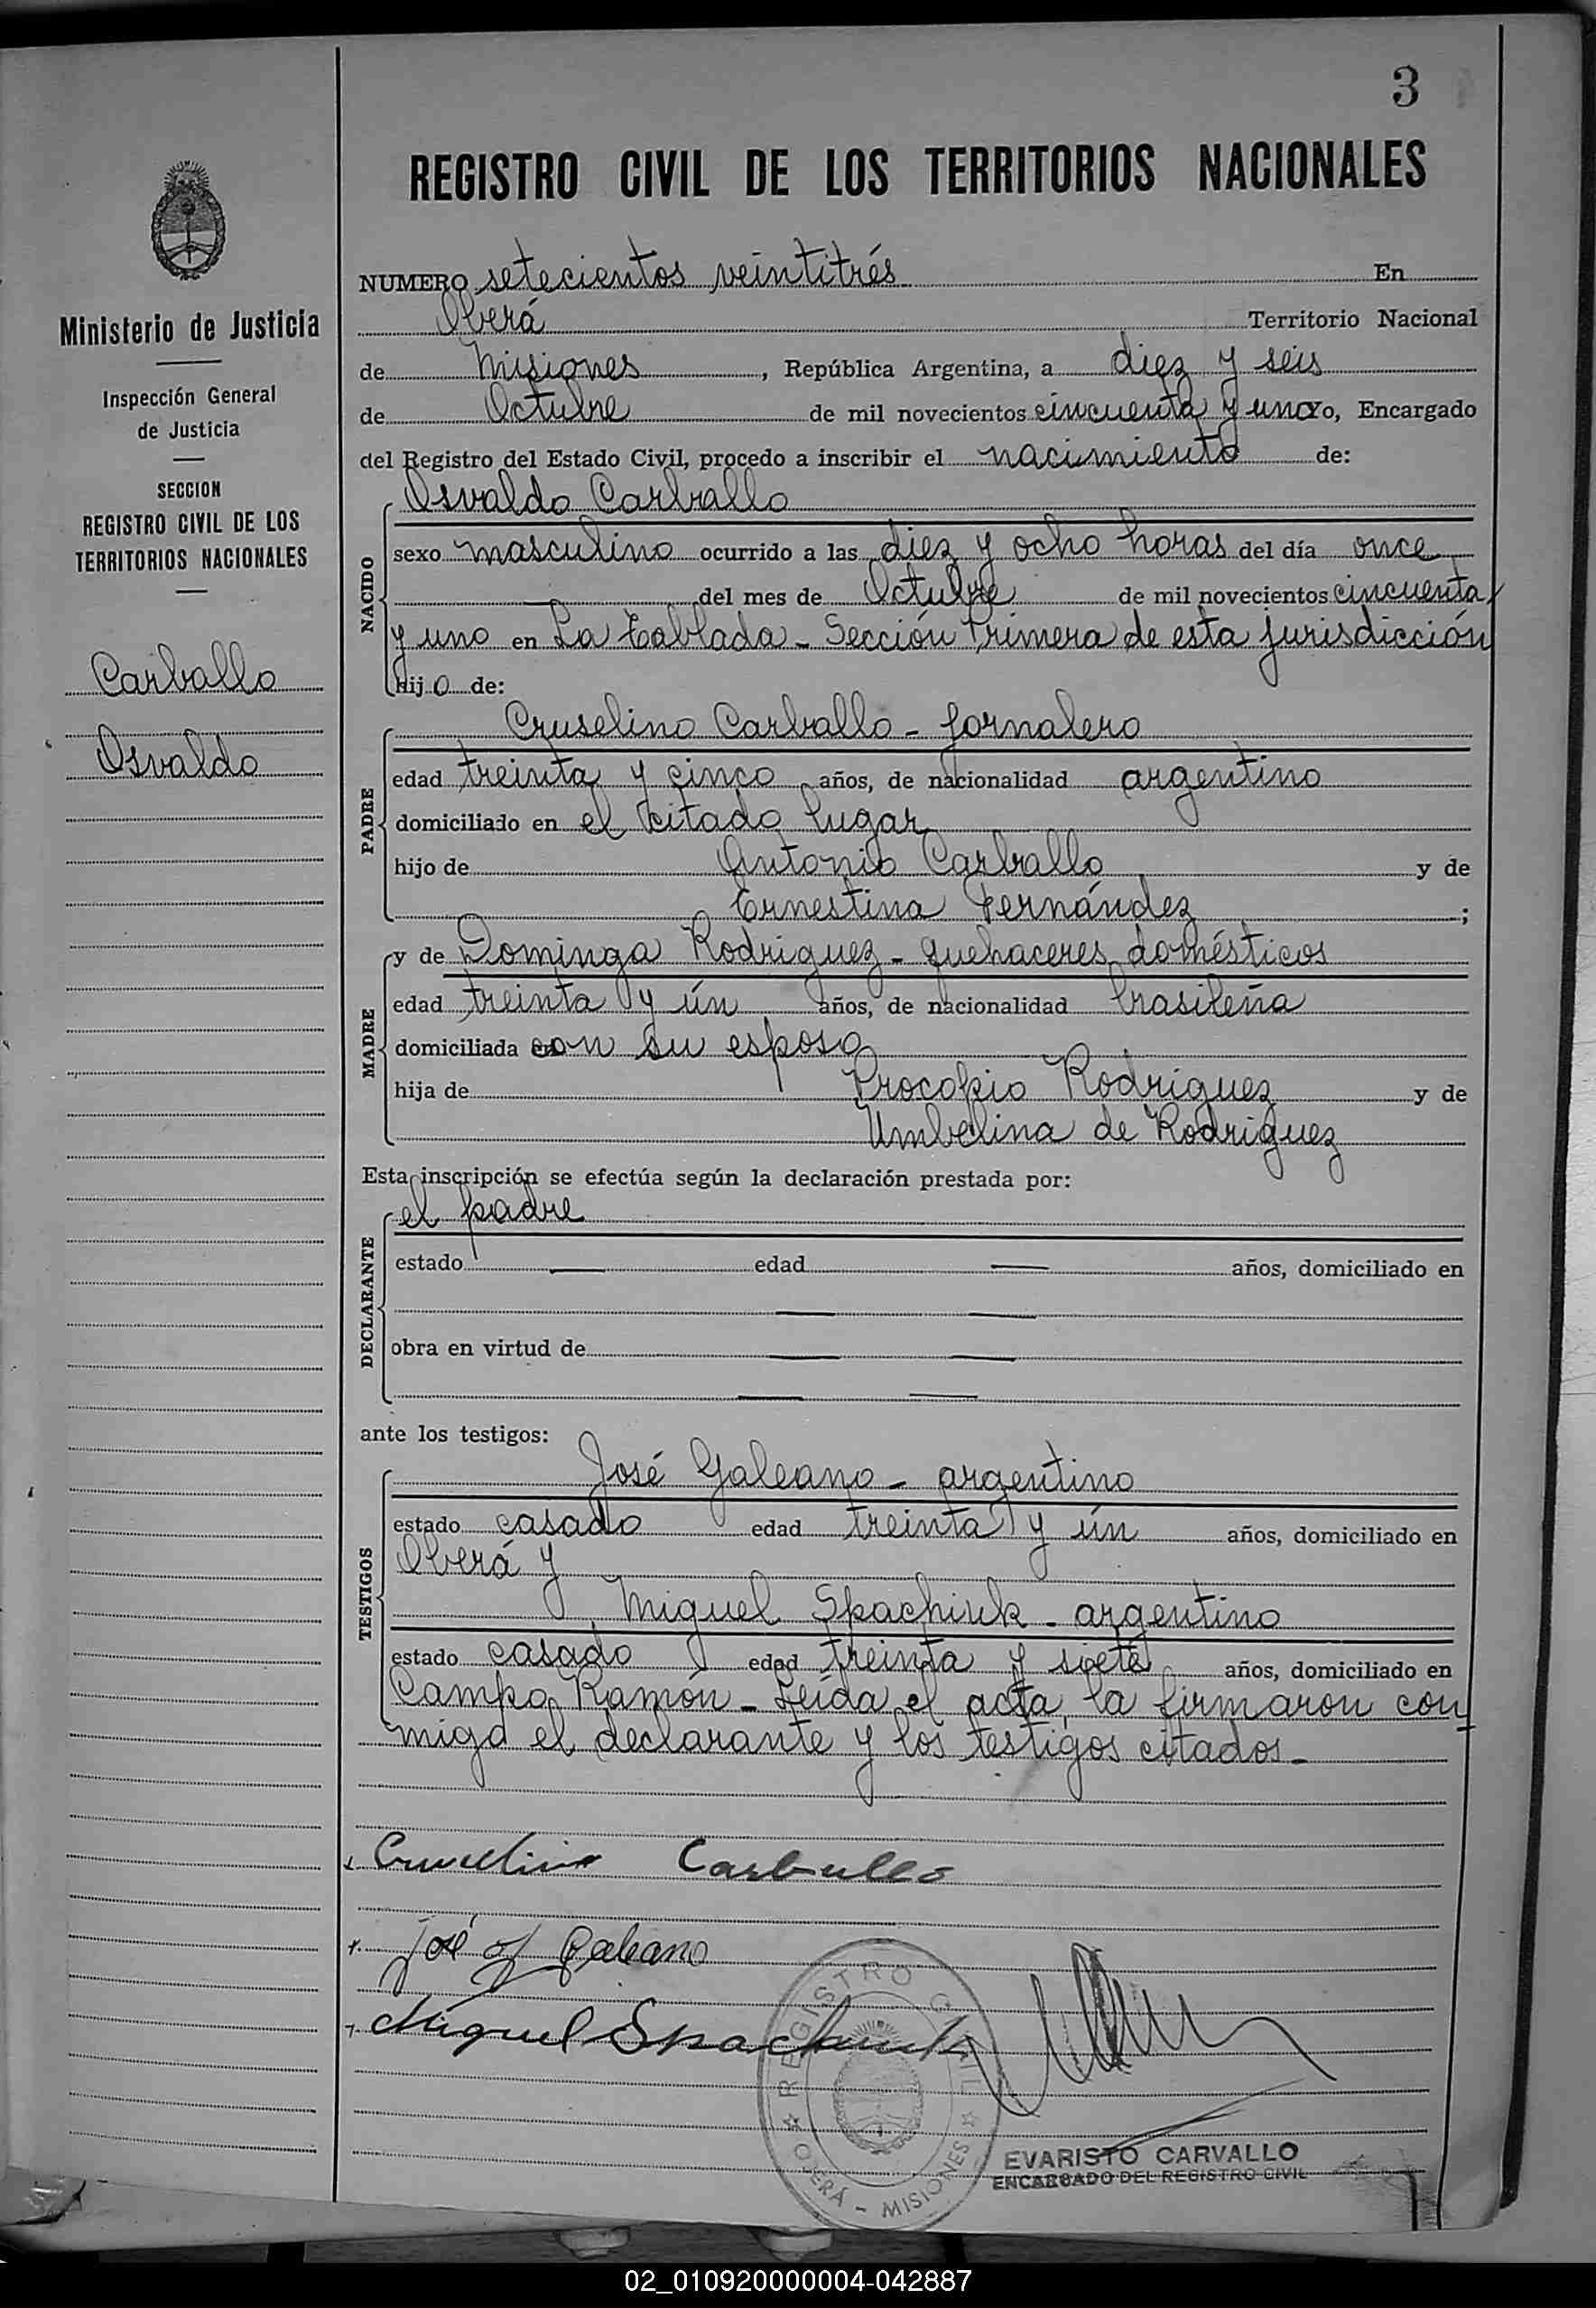 3
REGISTRO CIVIL DE LOS TERRITORIOS NACIONALES
Ministerio de Justicia
Inspección General
de Justicia
SECCION
REGISTRO CIVIL DE LOS
TERRITORIOS NACIONALES
Carballo
Osvaldo
NUMERO setecientos veintitrés En
Oberá Territorio Nacional
de Misiones, República Argentina, a diez y seis
de Octubre de mil novecientos cincuenta y uno yo, Encargado
del Registro del Estado Civil, procedo a inscribir el nacimiento de:
NACIDO
Osvaldo Carballo
sexo masculino ocurrido a las diez y ocho horas del día once
del mes de Octubre de mil novecientos cincuenta
y uno en La Tablada - Sección Primera de esta jurisdicción
hijo de:
PADRE
Cruselino Carballo - jornalero
edad treinta y cinco años, de nacionalidad argentino
domiciliado en el citado lugar
hijo de Antonio Carballo y de
Ernestina Fernández;
MADRE
y de Dominga Rodriguez - quehaceres domésticos
edad treinta y ún años, de nacionalidad brasileña
domiciliada con su esposo
hija de Procopio Rodriguez y de
Umbelina de Rodriguez
Esta inscripción se efectúa según la declaración prestada por:
DECLARANTE
el padre
estado — edad — años, domiciliado en
— —
obra en virtud de — —
— —
ante los testigos:
TESTIGOS
José Galeano - argentino
estado casado edad treinta y ún años, domiciliado en
Oberá y
Miguel Spachiuk - argentino
estado casado edad treinta y siete años, domiciliado en
Campo Ramón - Leída el acta, la firmaron con
migo el declarante y los testigos citados -
Cruselino Carballo
José Galeano
Miguel Spachiuk
REGISTRO CIVIL
OBERÁ - MISIONES
EVARISTO CARVALLO
ENCARGADO DEL REGISTRO CIVIL
02_010920000004-042887